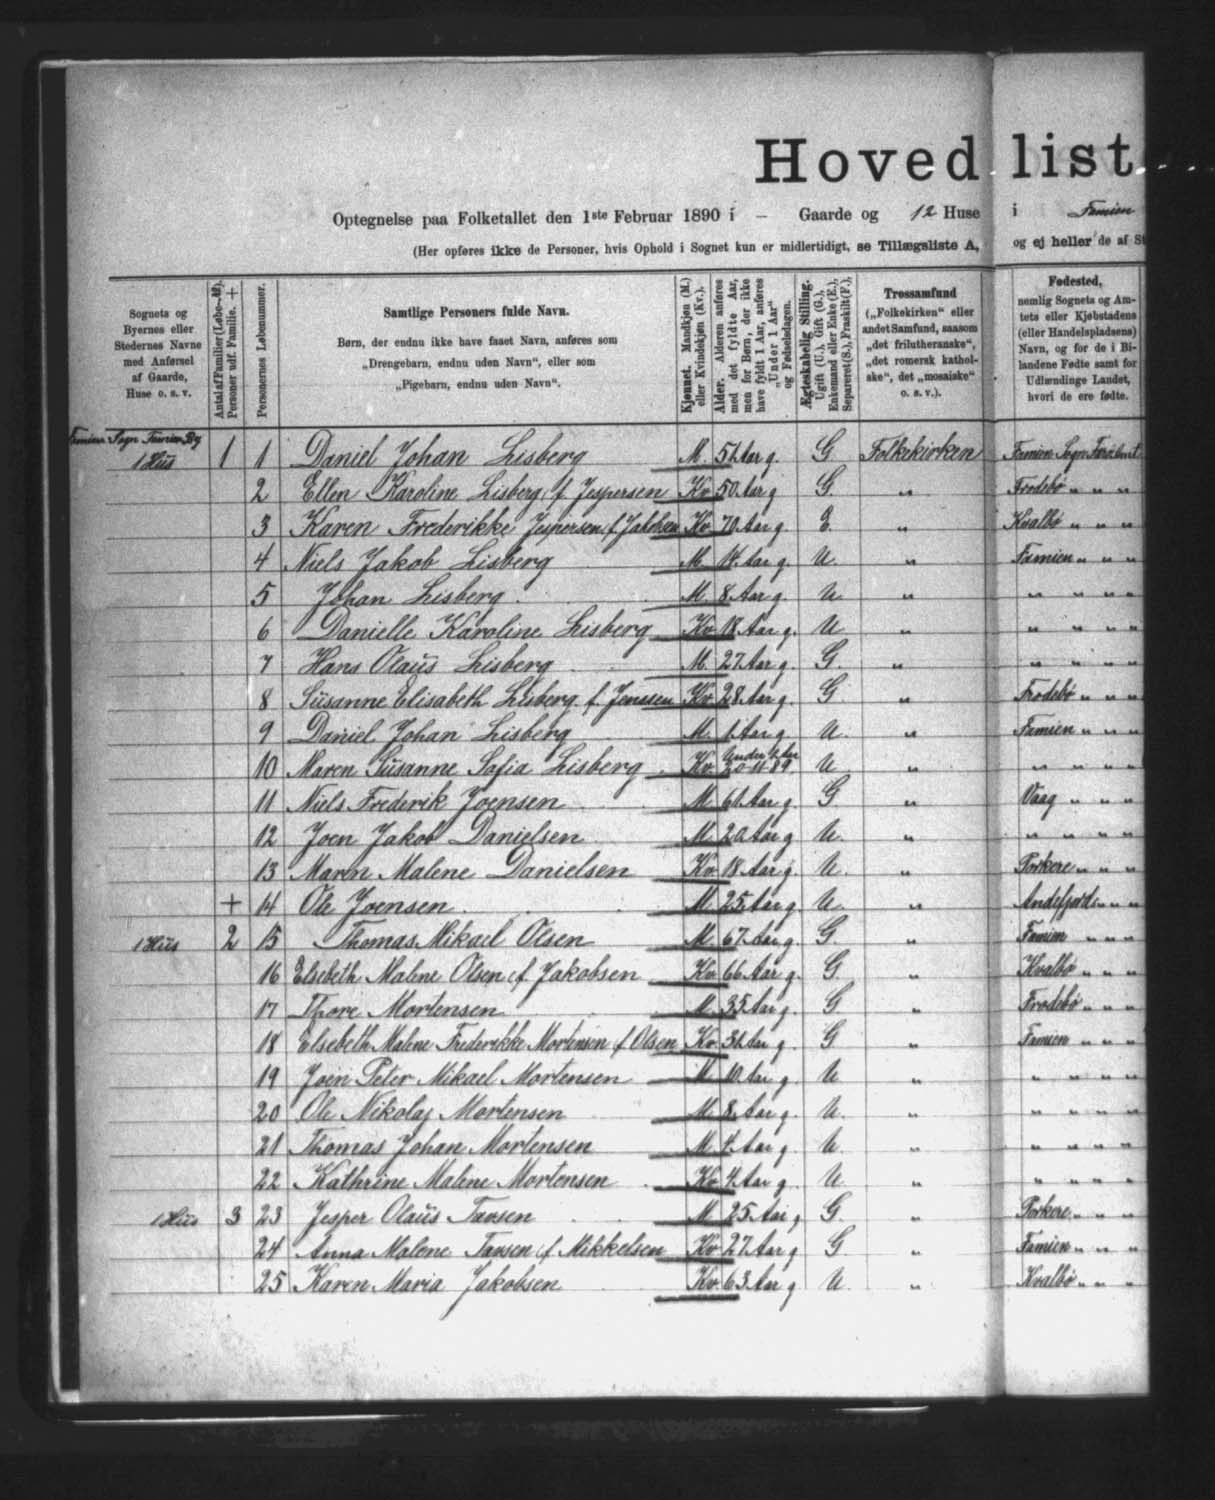 Hovedlist
Optegnelse paa Folketallet den 1ste Februar 1890 i – Gaarde og 12 Huse i Famien
(Her opføres ikke de Personer, hvis Ophold i Sognet kun er midlertidigt, se Tillægsliste A, og ej heller de af St
Sognets og Byernes eller Stedernes Navne med Anførsel af Gaarde, Huse o. s. v.
Antal af Familier (Løbe-№). Personer udf. Familie. +
Personernes Løbenummer.
Samtlige Personers fulde Navn.
Børn, der endnu ikke have faaet Navn, anføres som
„Drengebarn, endnu uden Navn“, eller som
„Pigebarn, endnu uden Navn“.
Kjønnet. Mandkjøn (M.) eller Kvindekjøn (Kv.).
Alder. Alderen anføres med det fyldte Aar, men for Børn, der ikke have fyldt 1 Aar, anføres „Under 1 Aar“ og Fødselsdagen.
Ægteskabelig Stilling. Ugift (U.), Gift (G.), Enkemand eller Enke (E.), Separeret (S.), Fraskilt (F.).
Trossamfund („Folkekirken“ eller andet Samfund, saasom „det frilutheranske“, „det romersk katholske“, det „mosaiske“ o. s. v.).
Fødested, nemlig Sognets og Amtets eller Kjøbstadens (eller Handelspladsens) Navn, og for de i Bilandene Fødte samt for Udlændinge Landet, hvori de ere fødte.
Famien Sogn Famien By
1 Hus 1 1 Daniel Johan Lisberg M. 51 Aar g. G Folkekirken Famien Sogn
2 Ellen Karoline Lisberg f. Jespersen Kv. 50 Aar g G. „ Frodebø „ „ „
3 Karen Frederikke Jespersen f. Jakobsen Kv. 70 Aar g. E. „ Kvalbø „ „ „
4 Niels Jakob Lisberg M. 14 Aar g. U. „ Famien „ „ „
5 Johan Lisberg M. 8 Aar g. U „ „ „ „ „
6 Danielle Karoline Lisberg Kv. 18 Aar g. U „ „ „ „ „
7 Hans Olaus Lisberg M. 27 Aar g. G. „ „ „ „ „
8 Susanne Elisabeth Lisberg f. Jensen Kv. 28 Aar g. G „ Frodebø „ „ „
9 Daniel Johan Lisberg M. 1 Aar g. U. „ Famien „ „ „
10 Maren Susanne Sofia Lisberg Kv. Under 1 Aar 20-11 89 U „ „ „ „ „
11 Niels Frederik Joensen M. 61 Aar g. G „ Vaag „ „ „
12 Joen Jakob Danielsen M. 20 Aar g U. „ „ „ „ „
13 Maren Malene Danielsen Kv. 18 Aar g. U. „ Porkere „ „ „
+ 14 Ole Joensen M. 25 Aar g. U. „ Andefjord „ „ „
1 Hus 2 15 Thomas Mikael Olsen M. 67 Aar g. G. „ Famien „ „ „
16 Elsebeth Malene Olsen f. Jakobsen Kv. 66 Aar g. G. „ Kvalbø „ „ „
17 Thore Mortensen M. 35 Aar g. G „ Frodebø „ „ „
18 Elsebeth Malene Frederikke Mortensen f. Olsen Kv. 31 Aar g. G „ Famien „ „ „
19 Joen Peter Mikael Mortensen M. 10 Aar g. U „ „ „ „ „
20 Ole Nikolaj Mortensen M. 8 Aar g. U. „ „ „ „ „
21 Thomas Johan Mortensen M. 4 Aar g. U. „ „ „ „ „
22 Kathrine Malene Mortensen Kv. 4 Aar g. U. „ „ „ „ „
1 Hus 3 23 Jesper Olaus Tausen M. 25 Aar g G. „ Porkere „ „ „
24 Anna Malene Tausen f. Mikkelsen Kv. 27 Aar g G. „ Famien „ „ „
25 Karen Maria Jakobsen Kv. 63 Aar g U. „ Kvalbø „ „ „